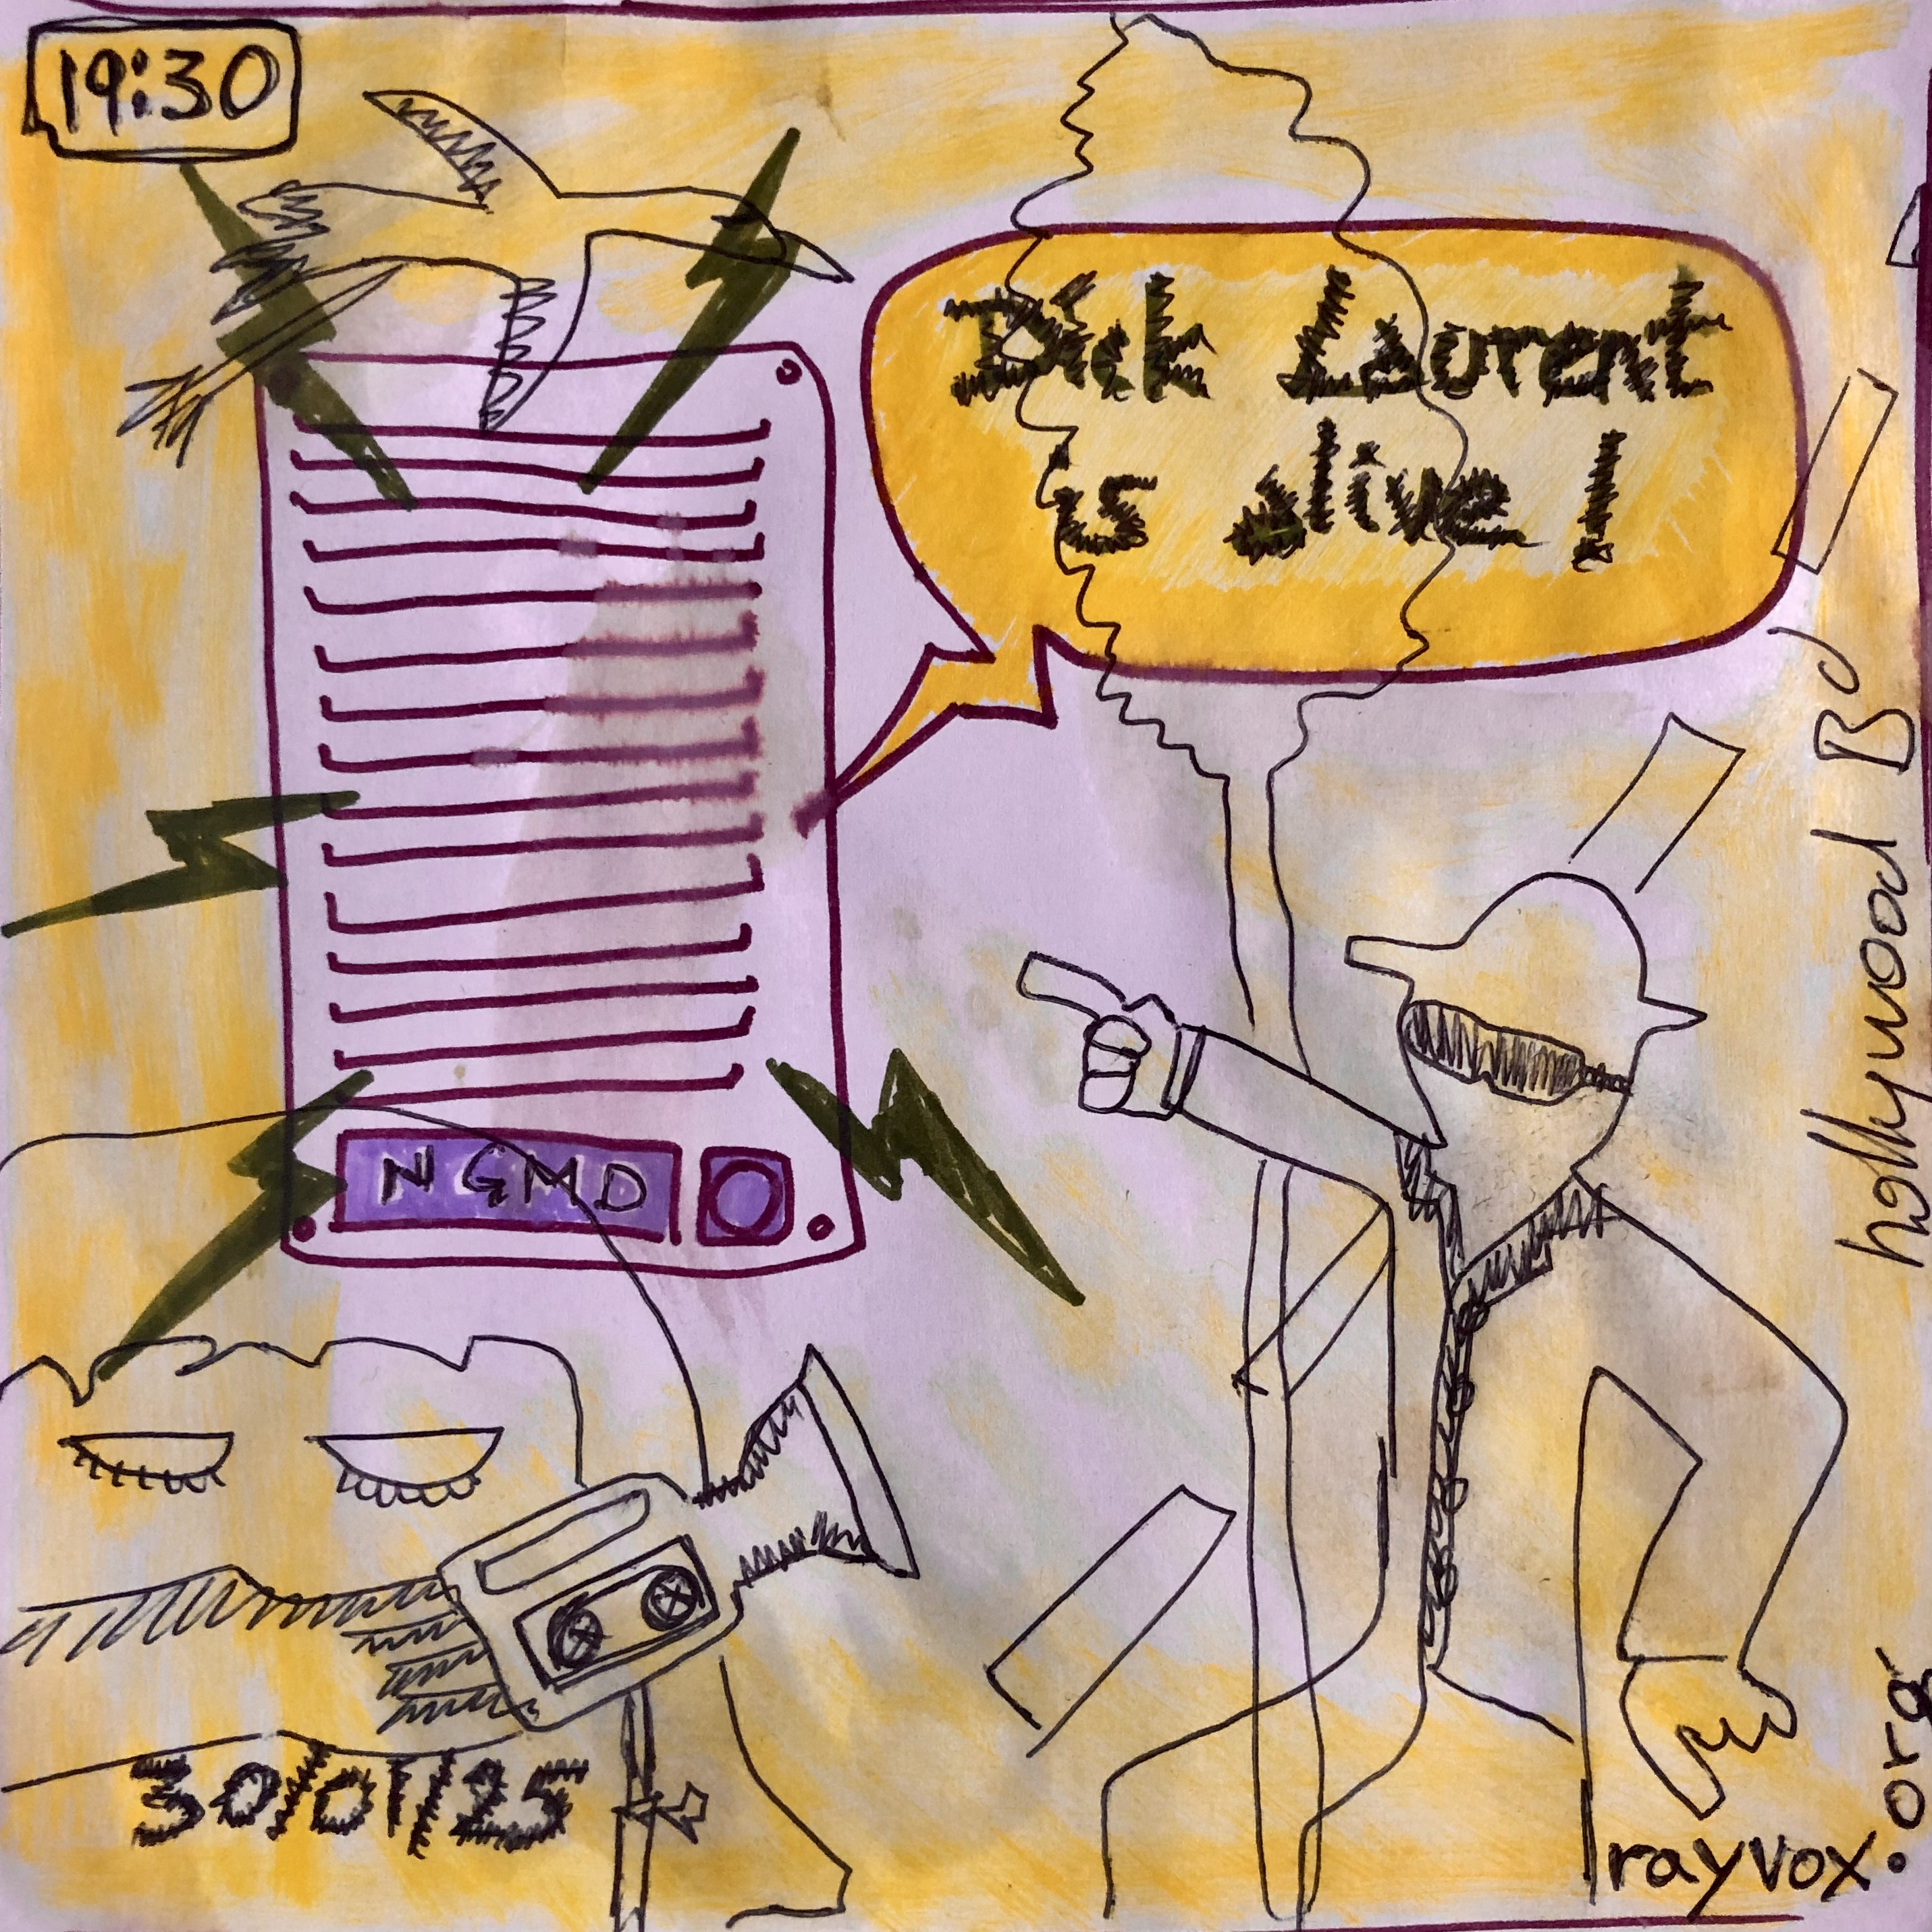 19:30
Dick Laurent
is alive!
NGMD
hollywood Bd
30/01/25
rayvox.org